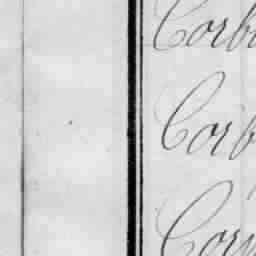 Corb
Corb
Cor